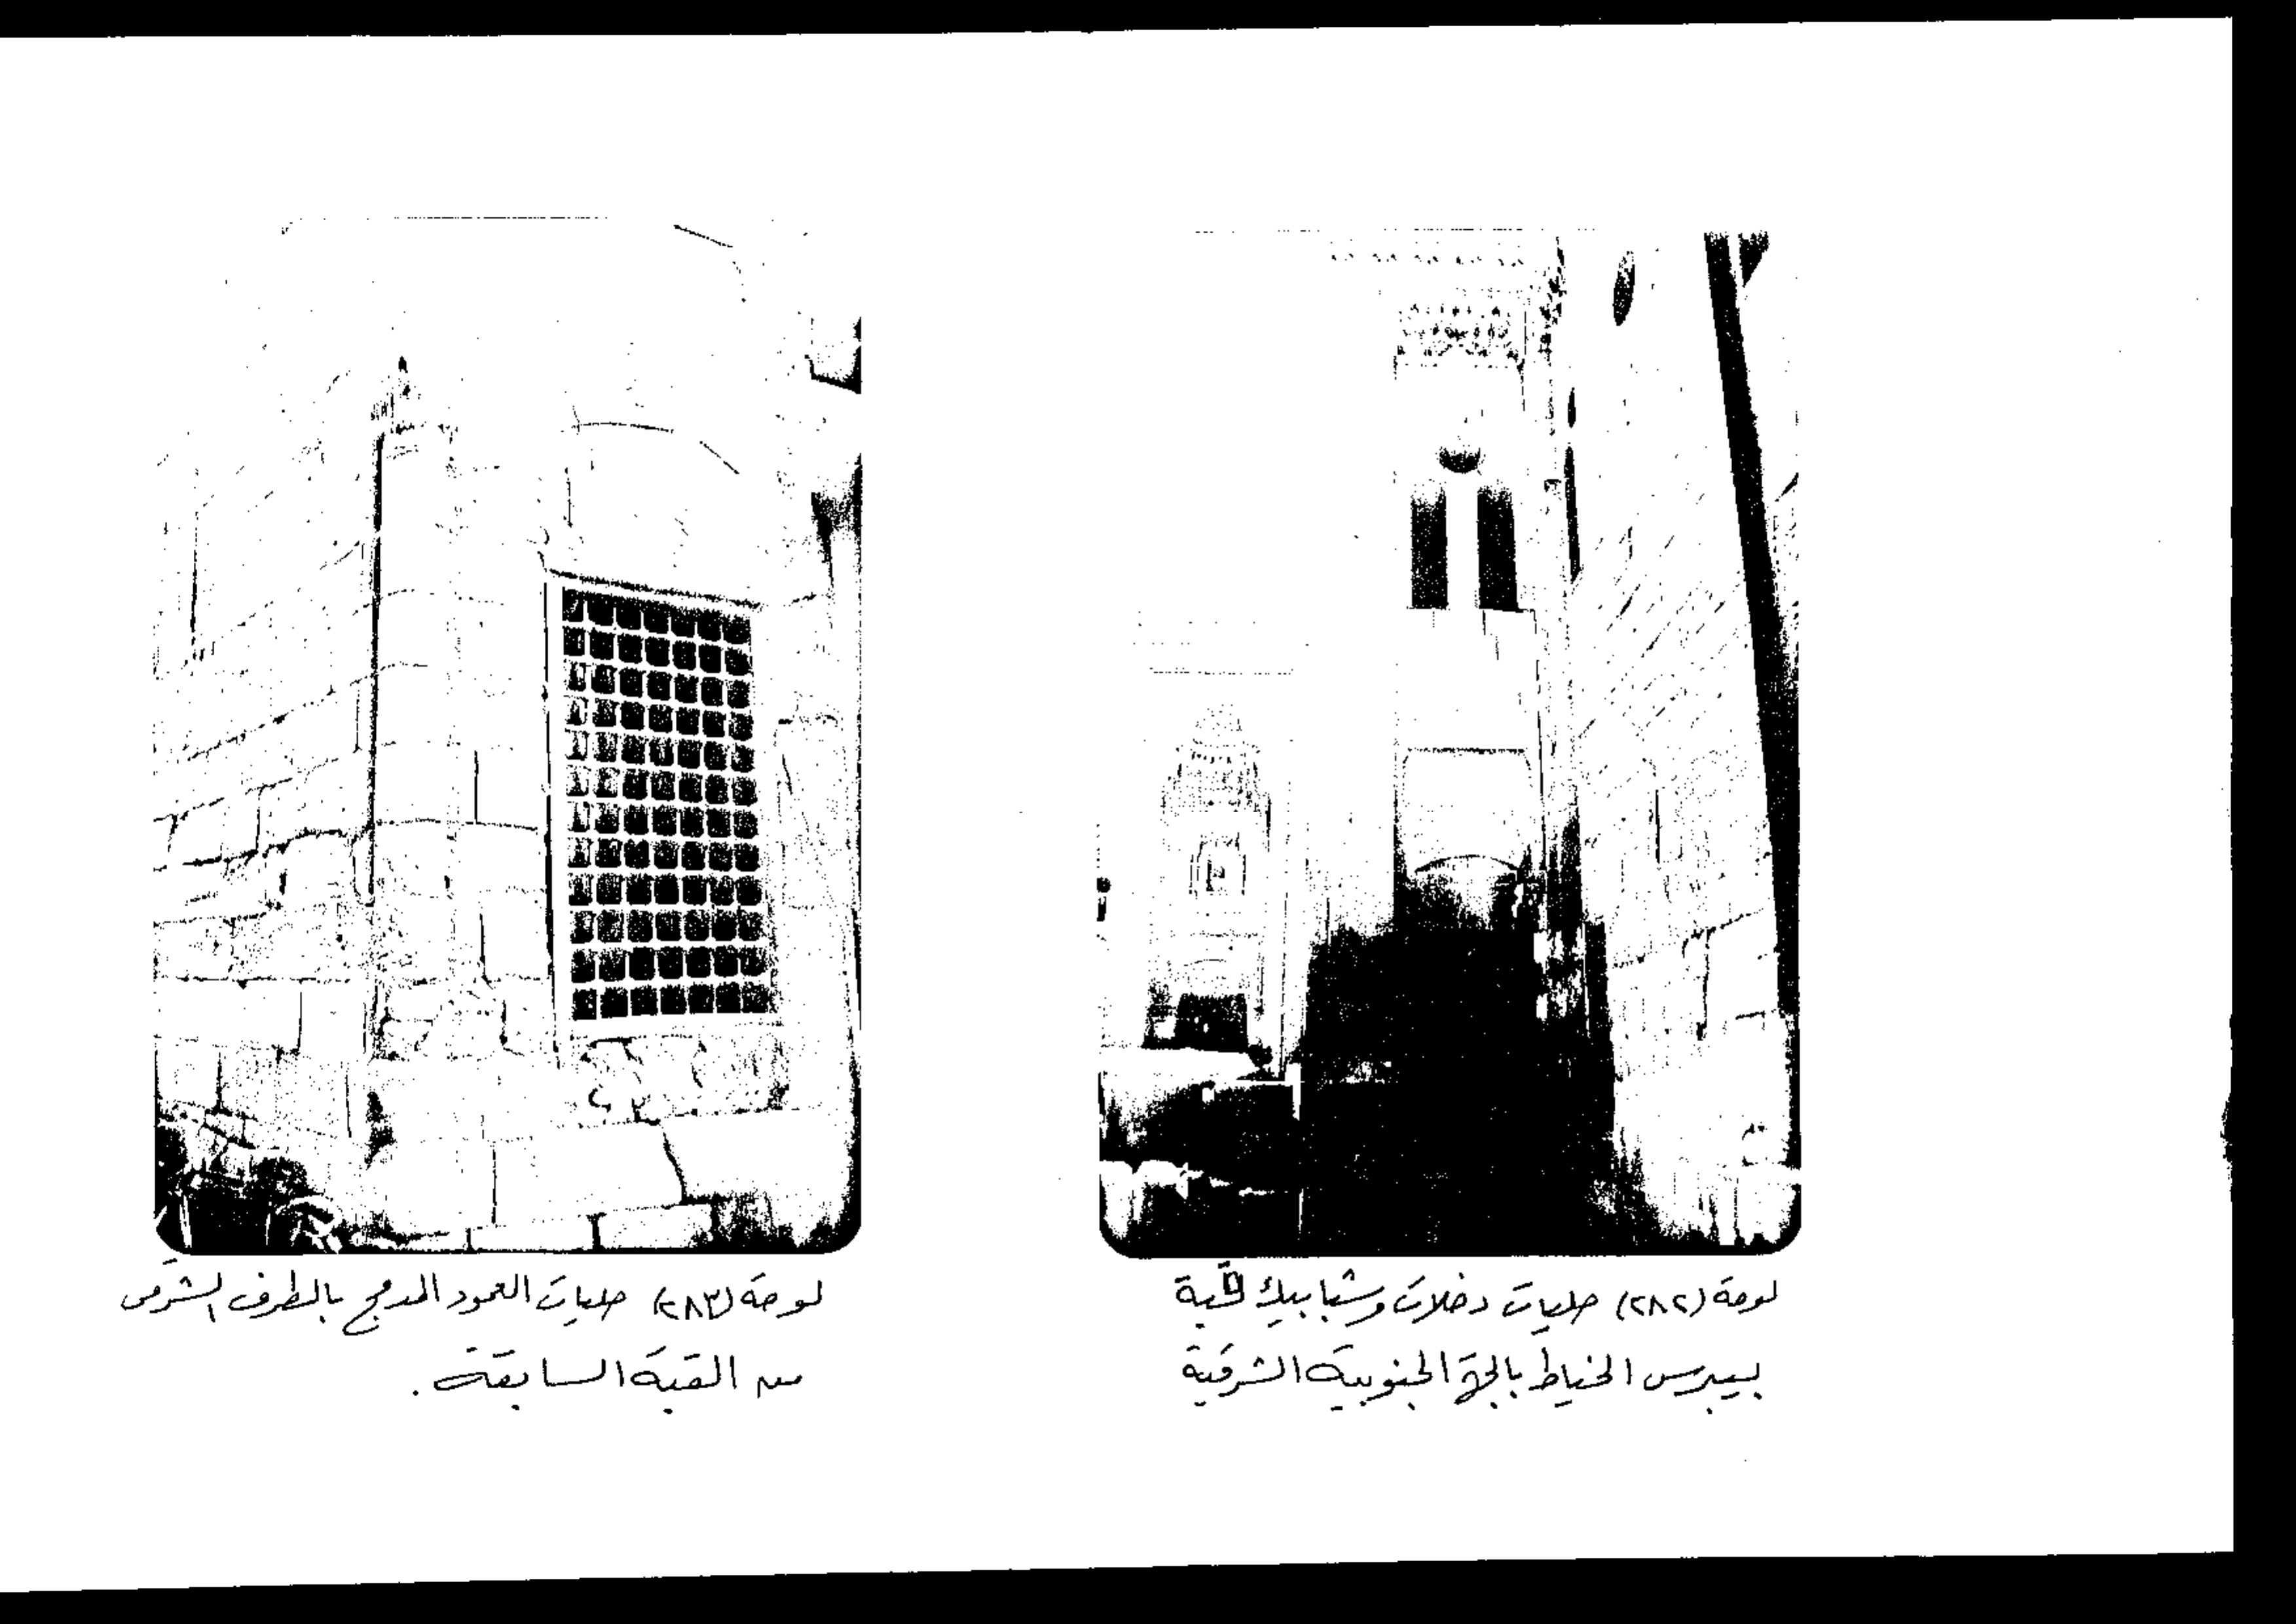 لوحة (٢٨٢) حليات دخلات وشبابيك قبة
بيبرس الخياط بالجهة الجنوبية الشرقية
لوحة (٢٨٣) حليات العمود المدمج بالطرف الشرقى
من القبة السابقة .